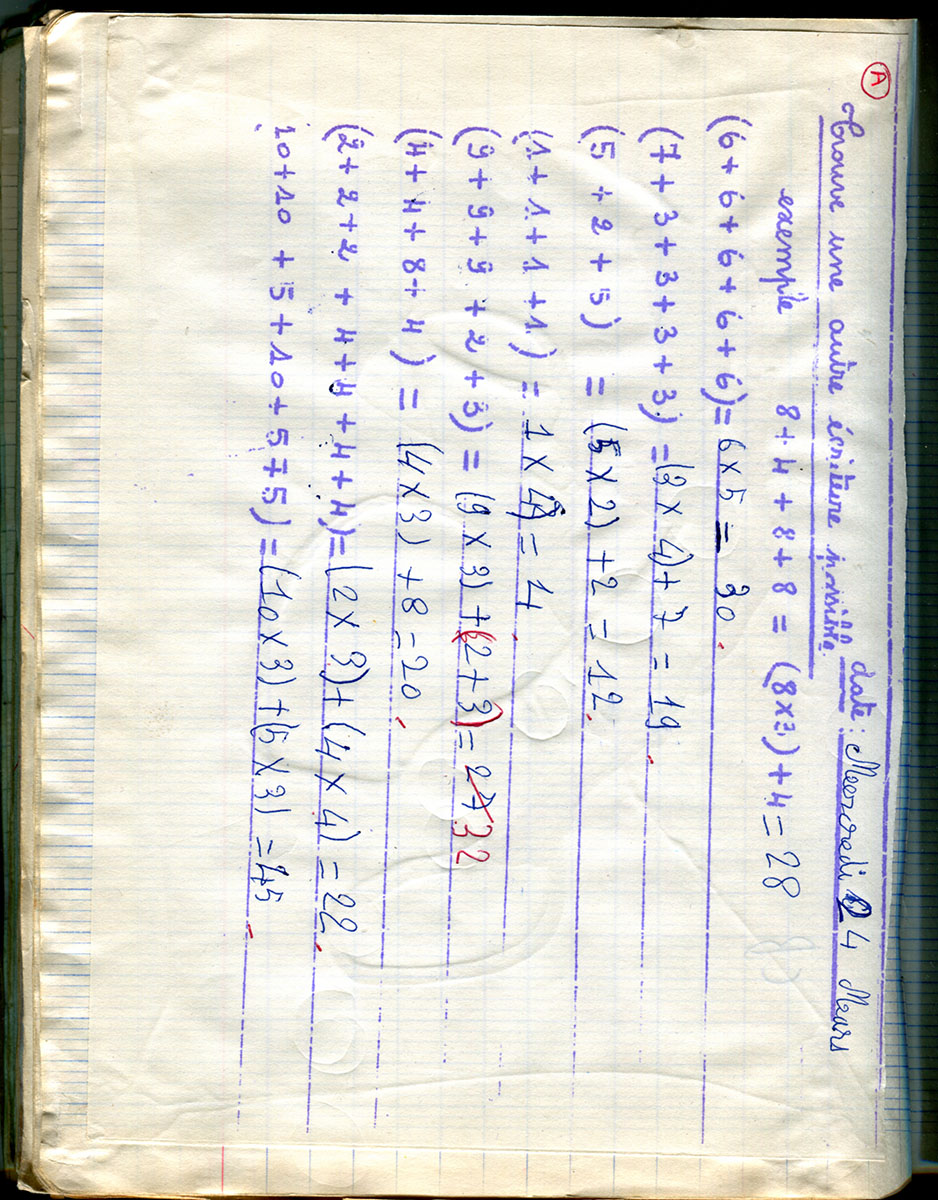 A
date : Mercredi 24 Mars
Trouve une autre écriture possible.
exemple 8 + 4 + 8 + 8 = (8 x 3) + 4 = 28
(6 + 6 + 6 + 6 + 6) = 6 x 5 = 30
(7 + 3 + 3 + 3 + 3) = (3 x 4) + 7 = 19
(5 + 2 + 5) = (5 x 2) + 2 = 12
(1 + 1 + 1 + 1) = 1 x 4 = 4
(9 + 9 + 9 + 2 + 3) = (9 x 3) + (2 + 3) = 27 32
(4 + 4 + 8 + 4) = (4 x 3) + 8 = 20
(2 + 2 + 2 + 4 + 4 + 4 + 4) = (2 x 3) + (4 x 4) = 22
10 + 10 + 5 + 10 + 5 + 5) = (10 x 3) + (5 x 3) = 45